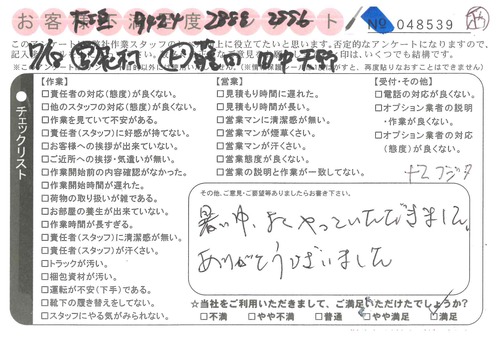 お客 不 度 ート
№ 048539
このアンケートは 社作業スタッフの 上に役立てたいと思います。否定的なアンケートになりますので、
印は、いくつでも結構です。
チェックリスト
【作業】
□責任者の対応(態度)が良くない。
□他のスタッフの対応(態度)が良くない。
□作業を見ていて不安がある。
□責任者(スタッフ)に好感が持てない。
□お客様への挨拶が出来ていない。
□ご近所への挨拶・気遣いが無い。
□作業開始前の内容確認がなかった。
□作業開始時間が遅れた。
□荷物の取り扱いが雑である。
□お部屋の養生が出来ていない。
□作業時間が長すぎる。
□責任者(スタッフ)に清潔感が無い。
□責任者(スタッフ)が汗くさい。
□トラックが汚い。
□梱包資材が汚い。
□運転が不安(下手)である。
□靴下の履き替えをしてない。
□スタッフにやる気がみられない。
【営業】
□見積もり時間に遅れた。
□見積もり時間が長い。
□営業マンに清潔感が無い。
□営業マンが煙草くさい。
□営業マンが汗くさい。
□営業態度が良くない。
□営業の説明と作業が一致してない。
【受付・その他】
□電話の対応が良くない。
□オプション業者の説明
・作業が良くない。
□オプション業者の対応
(態度)が良くない。
その他、ご意見・ご要望等ありましたらお書き下さい。
暑い中、よくやっていただきました。
ありがとうございました
☆当社をご利用いただきまして、ご満足いただけたでしょうか?
□不満 □やや不満 □普通 □やや満足 □満足